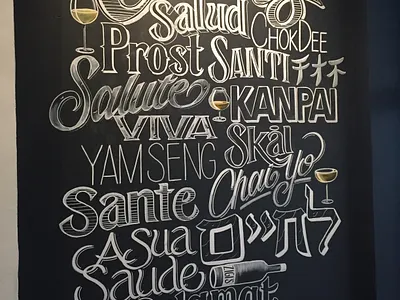 Salud
CHOKDEE
Prost SANTI 干杯
Salute KANPAI
VIVA Skål
YAM SENG Chai yo
Sante לחיים
A Sua
Saude